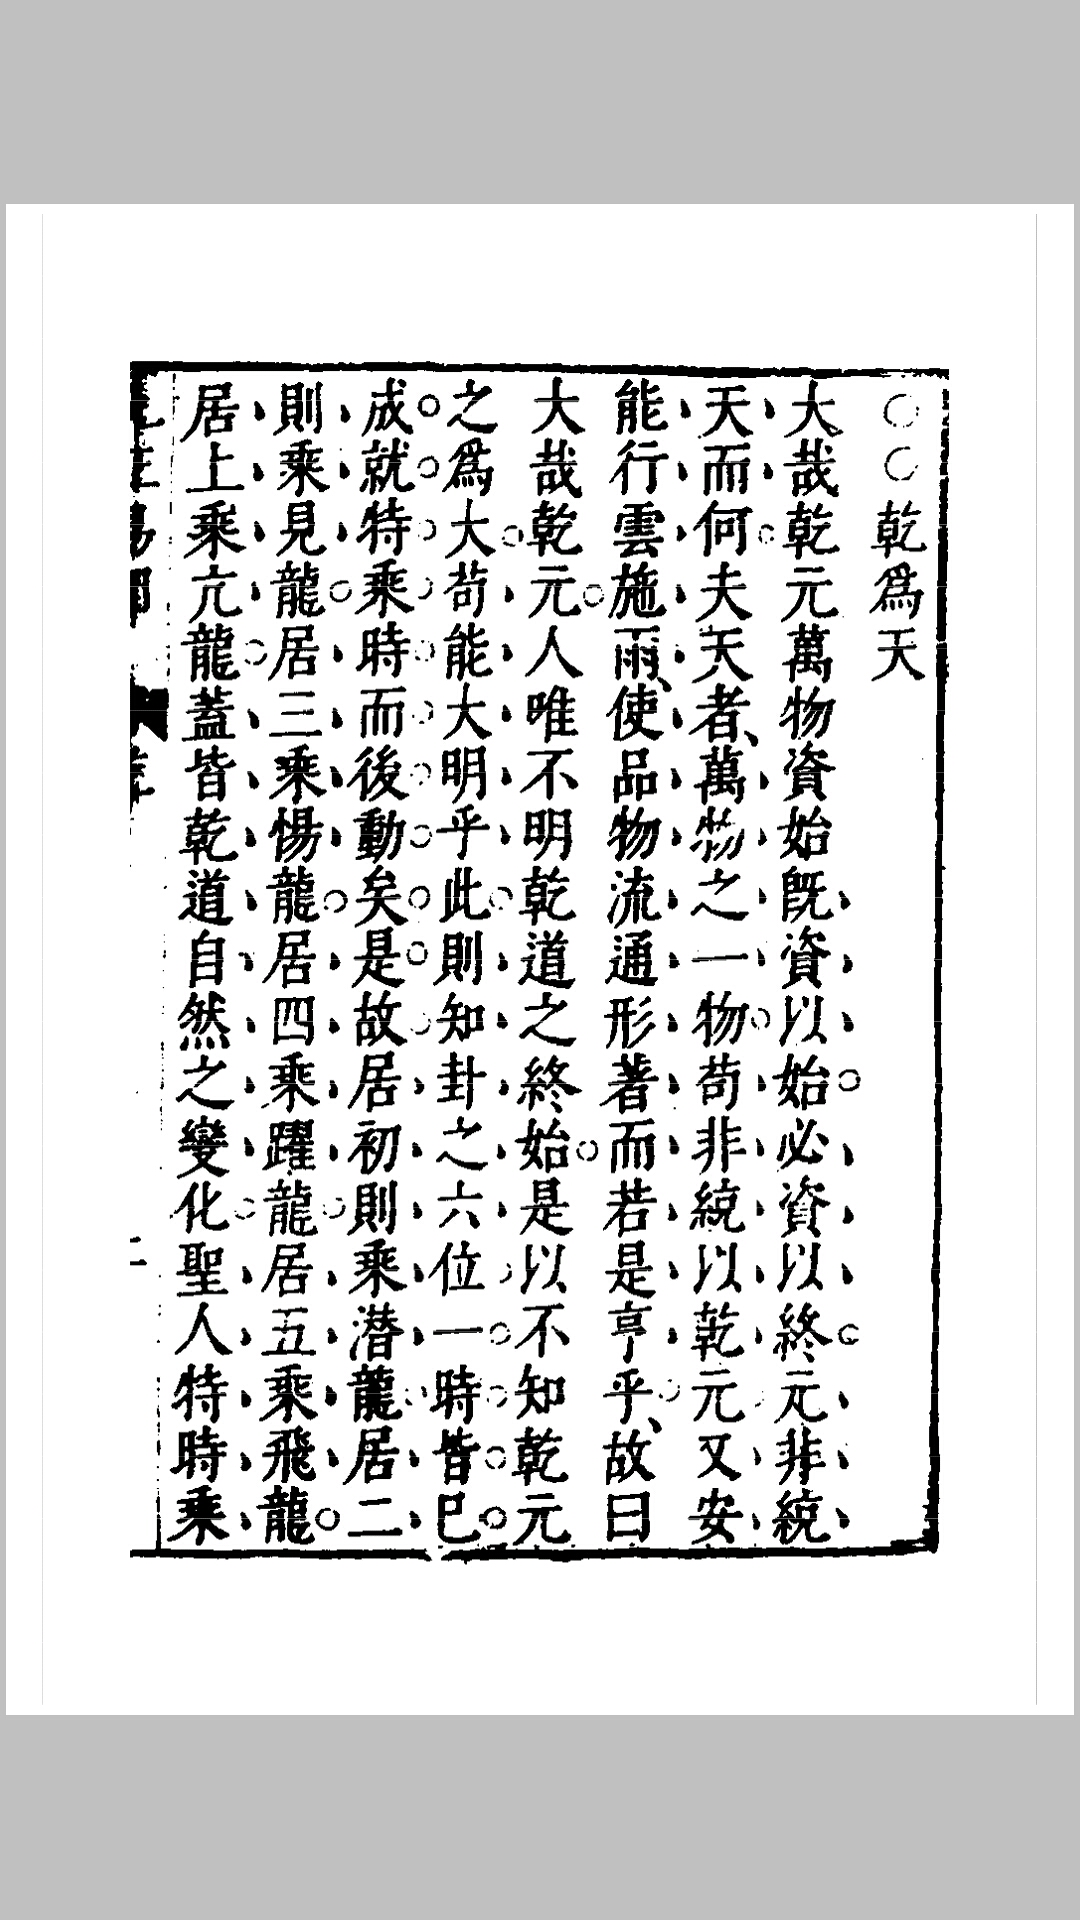 ○○乾爲天
大哉乾元萬物資始旣資以始必資以終元非統
天而何夫天者萬物之一物苟非統以乾元又安
能行雲施雨使品物流通形著而若是亨乎故曰
大哉乾元人唯不明乾道之終始是以不知乾元
之爲大苟能大明乎此則知卦之六位一時皆已
成就特乘時而後動矣是故居初則乘潛龍居二
則乘見龍居三乘惕龍居四乘躍龍居五乘飛龍
居上乘亢龍蓋皆乾道自然之變化聖人特時乘